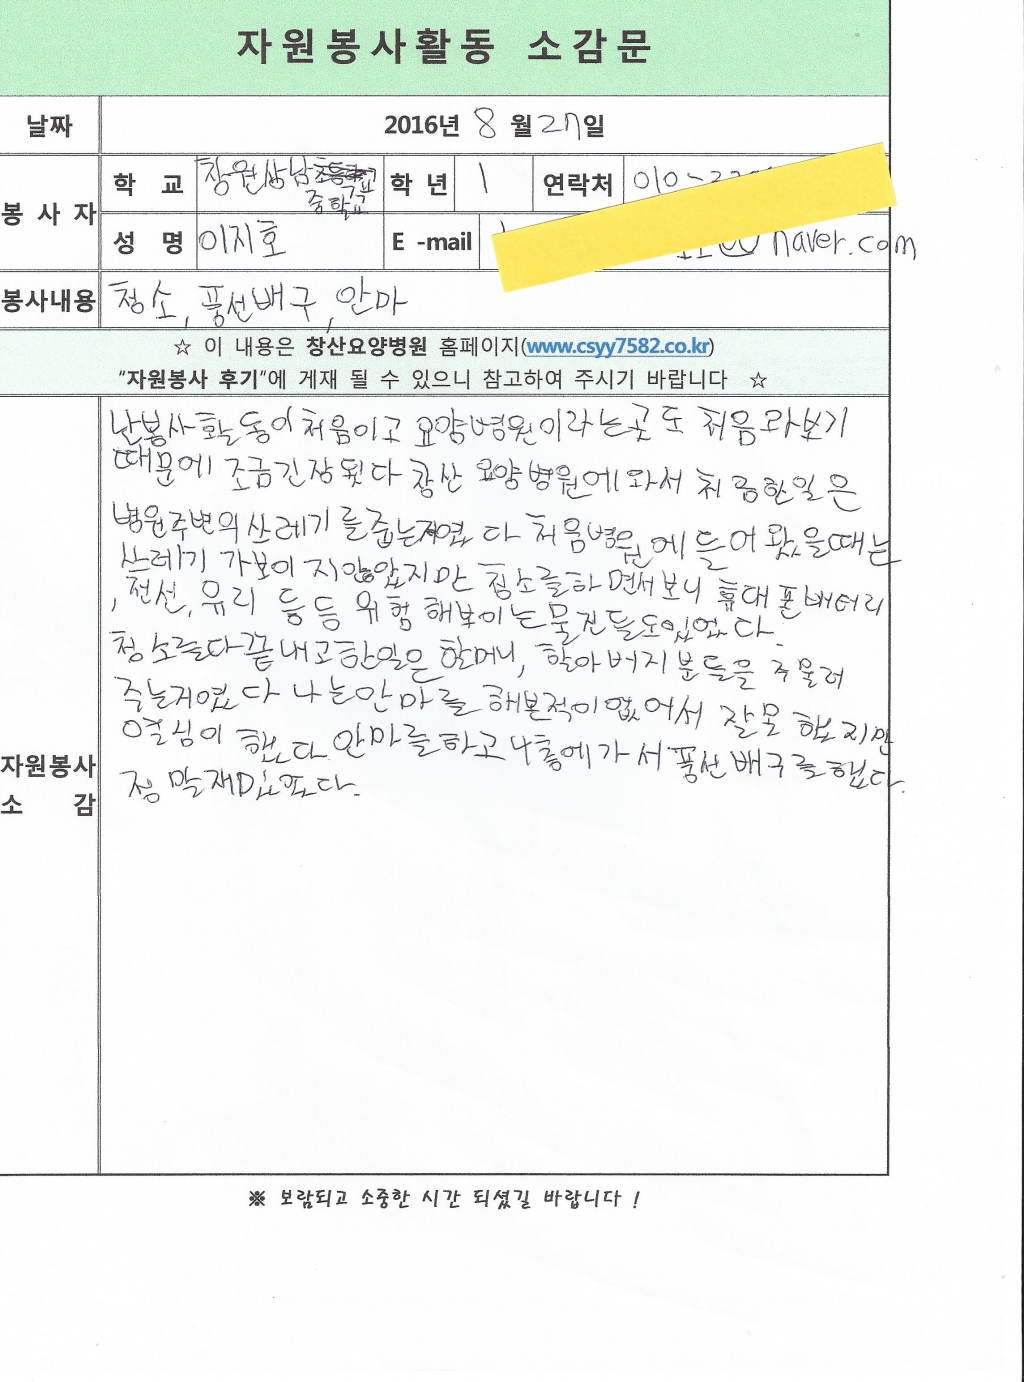 자원봉사활동 소감문
날짜 2016년 8 월 27일
봉 사 자
학 교 창원상남 중학교 학 년 1 연락처 010-
성 명 이지호 E -mail naver.com
봉사내용 청소, 풍선배구, 안마
☆ 이 내용은 창산요양병원 홈페이지(www.csyy7582.co.kr)
“자원봉사 후기”에 게재 될 수 있으니 참고하여 주시기 바랍니다 ☆
자원봉사
소 감
난봉사 활동이 처음이고 요양병원이라는곳도 처음와보기
때문에 조금긴장됬다 창산 요양병원에와서 처음한일은
병원주변의 쓰레기를줍는거였다 처음병원에들어왔을때는
쓰레기가보이지않았지만 청소를하면서보니 휴대폰배터리
, 전선, 유리 등등 위험해보이는물건들도있었다.
청소를다끝내고한일은 할머니, 할아버지분들을 주물러
주는거였다 나는안마를 해본적이없어서 잘못했지만
열심이 했다 안마를하고 4층에가서풍선배구를했다.
정말재미있었다.
※ 보람되고 소중한 시간 되셨길 바랍니다 !